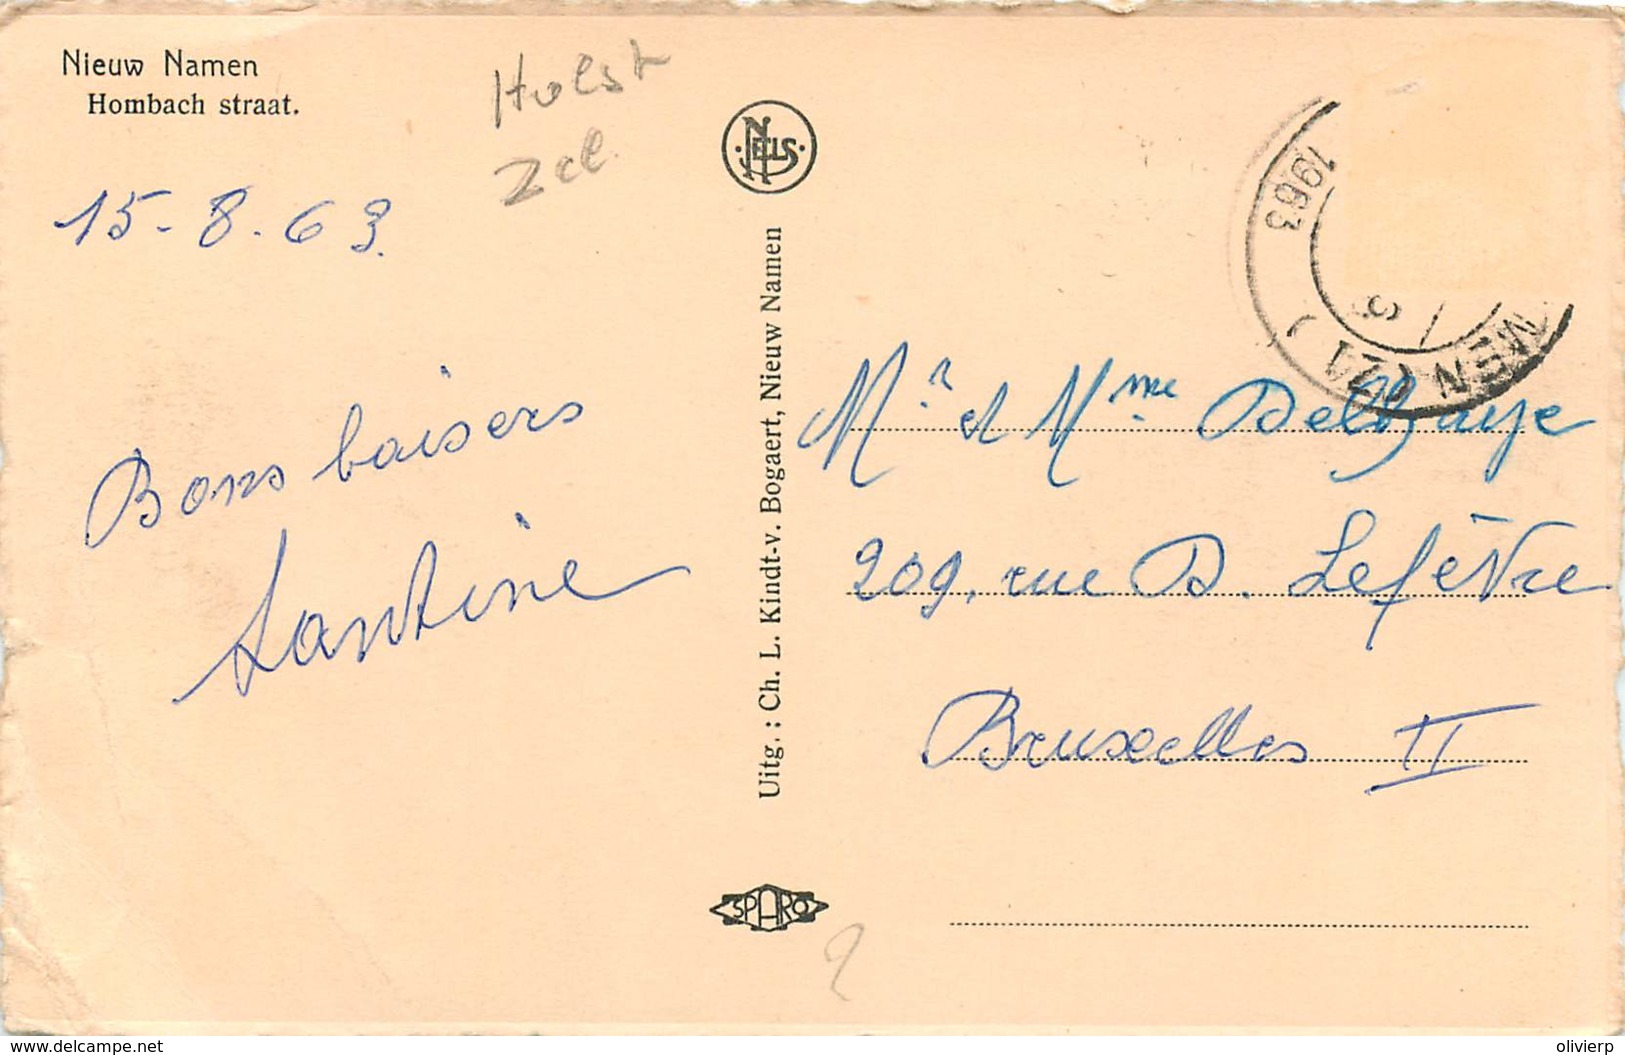 Nieuw Namen
Hombach straat.
Hulst
Zel.
15-8.63.
Bons baisers
Lantine
NELS
Uitg. : Ch. L. Kindt-v. Bogaert, Nieuw Namen
SPARO
1963
MEN (ZL
Mr et Mme Delhaye
209, rue D. Lefèvre
Bruxelles II
www.delcampe.net
olivierp